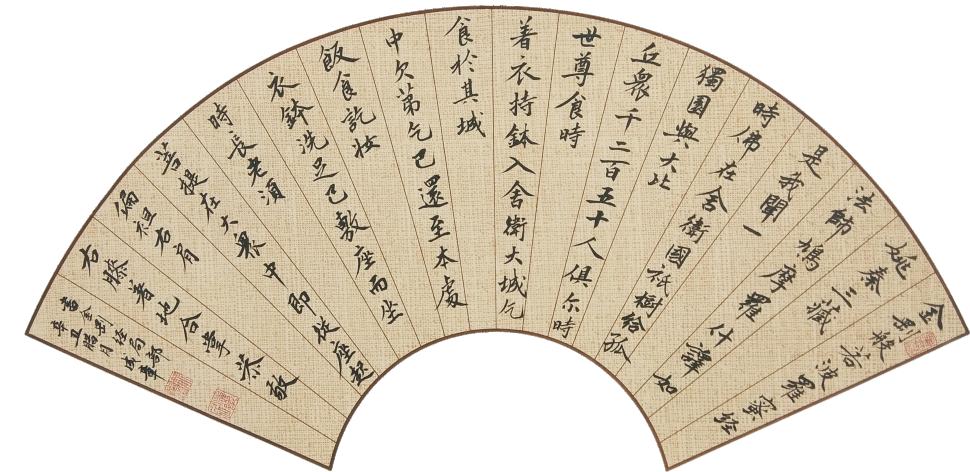 金剛般若波羅蜜經
姚秦三藏
法師鳩摩羅什譯如
是我聞一
時佛在舍衛國祇樹給孤
獨園與大比
丘眾千二百五十人俱尔時
世尊食時
着衣持鉢入舍衛大城乞
食於其城
中次第乞已還至本處
飯食訖收
衣鉢洗足已敷座而坐
時長老須
菩提在大眾中即從座起
偏袒右肩
右膝着地合掌恭敬
書金剛經句
辛丑腊月